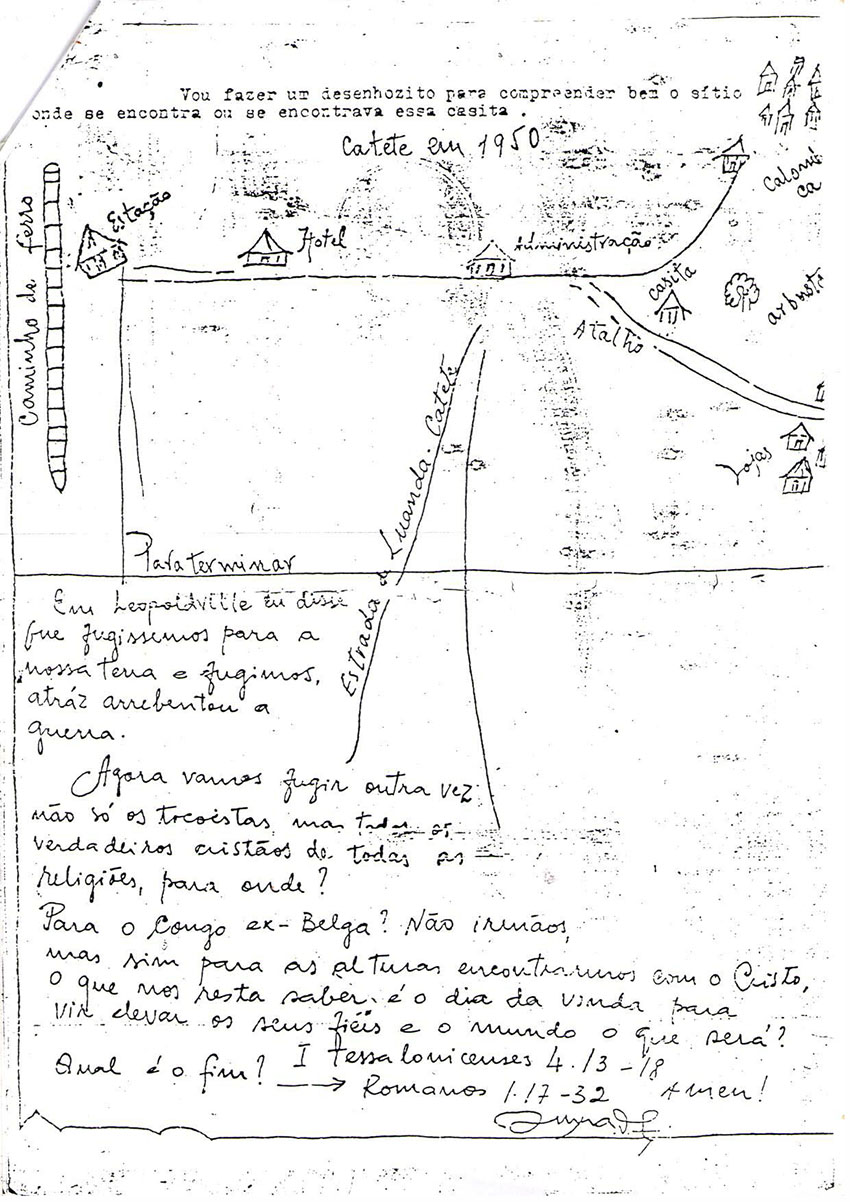 Vou fazer um desenhozito para compreender bem o sítio
onde se encontra ou se encontrava essa casita .
Catete em 1950
Caminho de ferro
Estação
Hotel
Administração
casita
Atalho
Estrada de Luanda - Catete
Lojas
Para terminar
Em Leopoldville eu disse
que fugissemos para a
nossa terra e fugimos,
atráz arrebentou a
guerra.
Agora vamos fugir outra vez
não só os tocoistas mas todos os
verdadeiros cristãos de todas as
religiões, para onde?
Para o Congo ex-Belga? Não irmãos,
mas sim para as alturas encontrarmos com o Cristo,
O que nos resta saber é o dia da vinda para
vir elevar os seus fiéis e o mundo o que será?
Qual é o fim? I Tessalonicenses 4.13-18
Romanos 1.17-32 Amen!